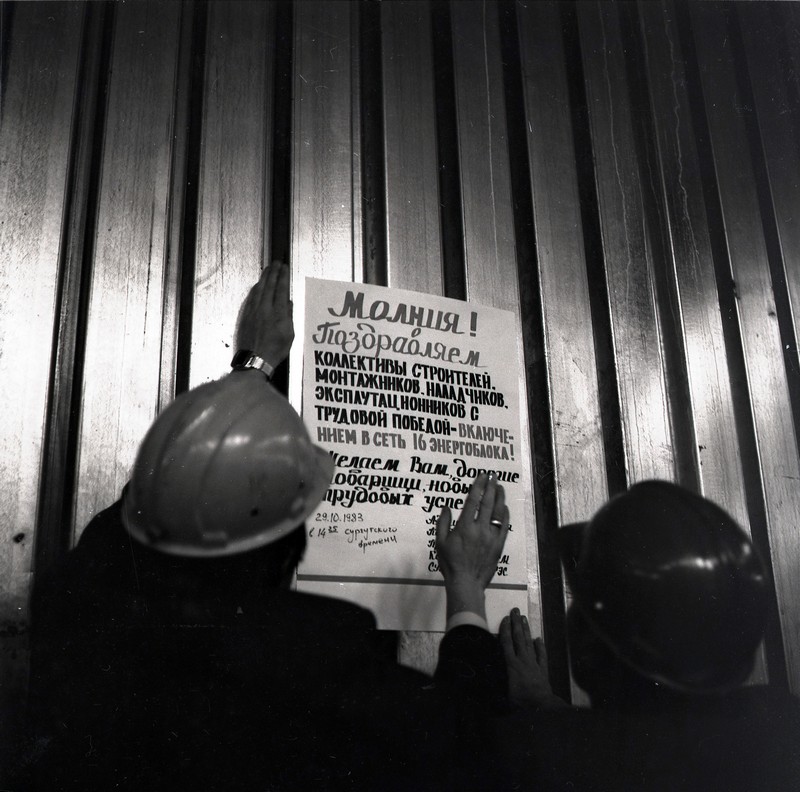 Молния!
Поздравляем
КОЛЛЕКТИВЫ СТРОИТЕЛЕЙ,
МОНТАЖНИКОВ, НАЛАДЧИКОВ,
ЭКСПЛУТАЦИОННИКОВ С
ТРУДОВОЙ ПОБЕДОЙ-ВКЛЮЧЕ-
НИЕМ В СЕТЬ 16 ЭНЕРГОБЛОКА!
елаем Вам, дорогие
товарищи, новы
трудовых успе
29.10.1983
в 14 25 сургутского
времени